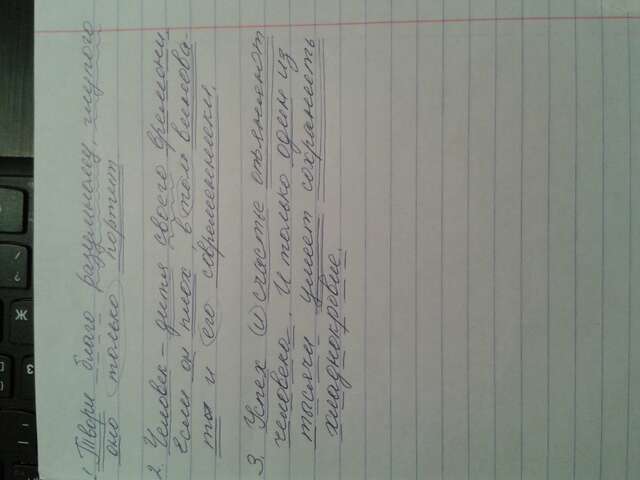 1. Твори благо разумному, глупого
оно только портит
2. Человек – дитя своего времени,
Если он плох, в том винова-
ты и его современники.
3. Успех и счастье опьяняют
человека. И только один из
тысячи умеет сохранить
хладнокровие.